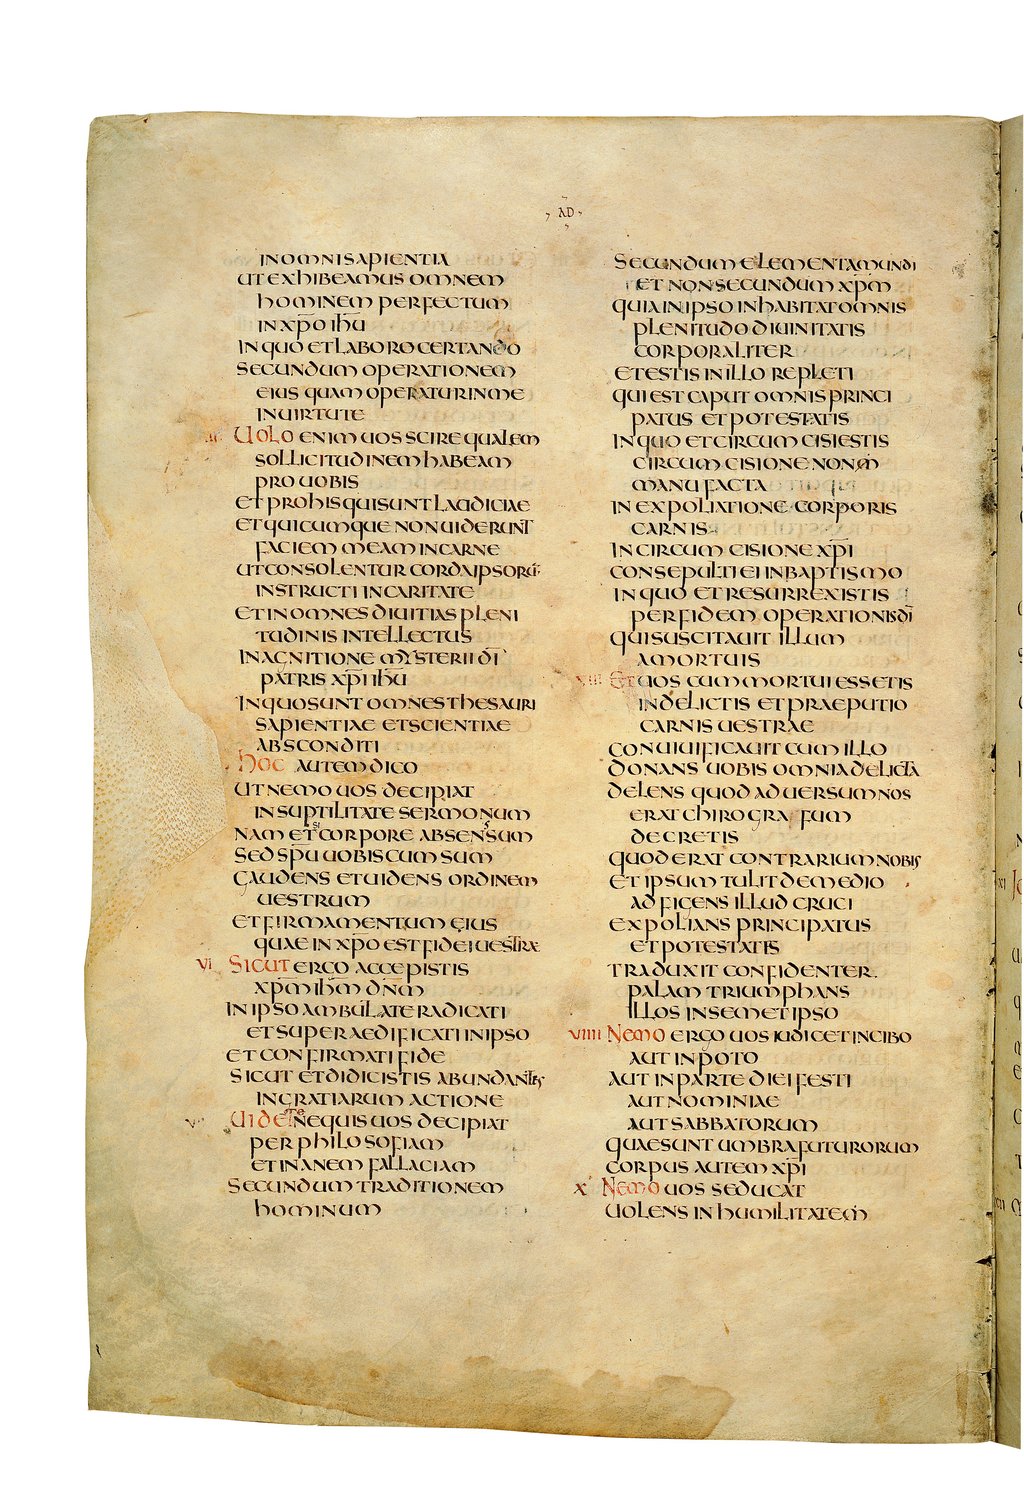 AD
IN OMNI SAPIENTIA
UT EXHIBEAMUS OMNEM
HOMINEM PERFECTUM
IN XP̅O IHU̅
IN QUO ET LABORO CERTANDO
SECUNDUM OPERATIONEM
EIUS QUAM OPERATUR IN ME
IN UIRTUTE
UOLO ENIM UOS SCIRE QUALEM
SOLLICITUDINEM HABEAM
PRO UOBIS
ET PRO HIS QUI SUNT LAODICIAE
ET QUICUMQUE NON UIDERUNT
FACIEM MEAM IN CARNE
UT CONSOLENTUR CORDA IPSORU̅
INSTRUCTI IN CARITATE
ET IN OMNES DIUITIAS PLENI
TUDINIS INTELLECTUS
IN AGNITIONE MYSTERII DI̅
PATRIS XP̅I IHU̅
IN QUO SUNT OMNES THESAURI
SAPIENTIAE ET SCIENTIAE
ABSCONDITI
HOC AUTEM DICO
UT NEMO UOS DECIPIAT
IN SUPTILITATE SERMONUM
NAM ETSI CORPORE ABSENS SUM
SED SPU̅ UOBISCUM SUM
GAUDENS ET UIDENS ORDINEM
UESTRUM
ET FIRMAMENTUM EIUS
QUAE IN XP̅O EST FIDEI UESTRAE
VI SICUT ERGO ACCEPISTIS
XP̅M IHM̅ DN̅M
IN IPSO AMBULATE RADICATI
ET SUPERAEDIFICATI IN IPSO
ET CONFIRMATI FIDE
SICUT ET DIDICISTIS ABUNDANTES
IN GRATIARUM ACTIONE
UIDETE NE QUIS UOS DECIPIAT
PER PHILOSOFIAM
ET INANEM FALLACIAM
SECUNDUM TRADITIONEM
HOMINUM
SECUNDUM ELEMENTA MUNDI
ET NON SECUNDUM XP̅M
QUIA IN IPSO INHABITAT OMNIS
PLENITUDO DIUINITATIS
CORPORALITER
ET ESTIS IN ILLO REPLETI
QUI EST CAPUT OMNIS PRINCI
PATUS ET POTESTATIS
IN QUO ET CIRCUMCISI ESTIS
CIRCUMCISIONE NON
MANU FACTA
IN EXPOLIATIONE CORPORIS
CARNIS
IN CIRCUMCISIONE XP̅I
CONSEPULTI EI IN BAPTISMO
IN QUO ET RESURREXISTIS
PER FIDEM OPERATIONIS DI̅
QUI SUSCITAUIT ILLUM
A MORTUIS
VIII ET UOS CUM MORTUI ESSETIS
IN DELICTIS ET PRAEPUTIO
CARNIS UESTRAE
CONUIUIFICAUIT CUM ILLO
DONANS UOBIS OMNIA DELICTA
DELENS QUOD ADUERSUM NOS
ERAT CHIROGRAFUM
DECRETIS
QUOD ERAT CONTRARIUM NOBIS
ET IPSUM TULIT DE MEDIO
ADFIGENS ILLUD CRUCI
EXPOLIANS PRINCIPATUS
ET POTESTATIS
TRADUXIT CONFIDENTER
PALAM TRIUMPHANS
ILLOS IN SEMET IPSO
VIIII NEMO ERGO UOS IUDICET IN CIBO
AUT IN POTO
AUT IN PARTE DIEI FESTI
AUT NOMINIAE
AUT SABBATORUM
QUAE SUNT UMBRA FUTURORUM
CORPUS AUTEM XP̅I
X NEMO UOS SEDUCAT
UOLENS IN HUMILITATEM